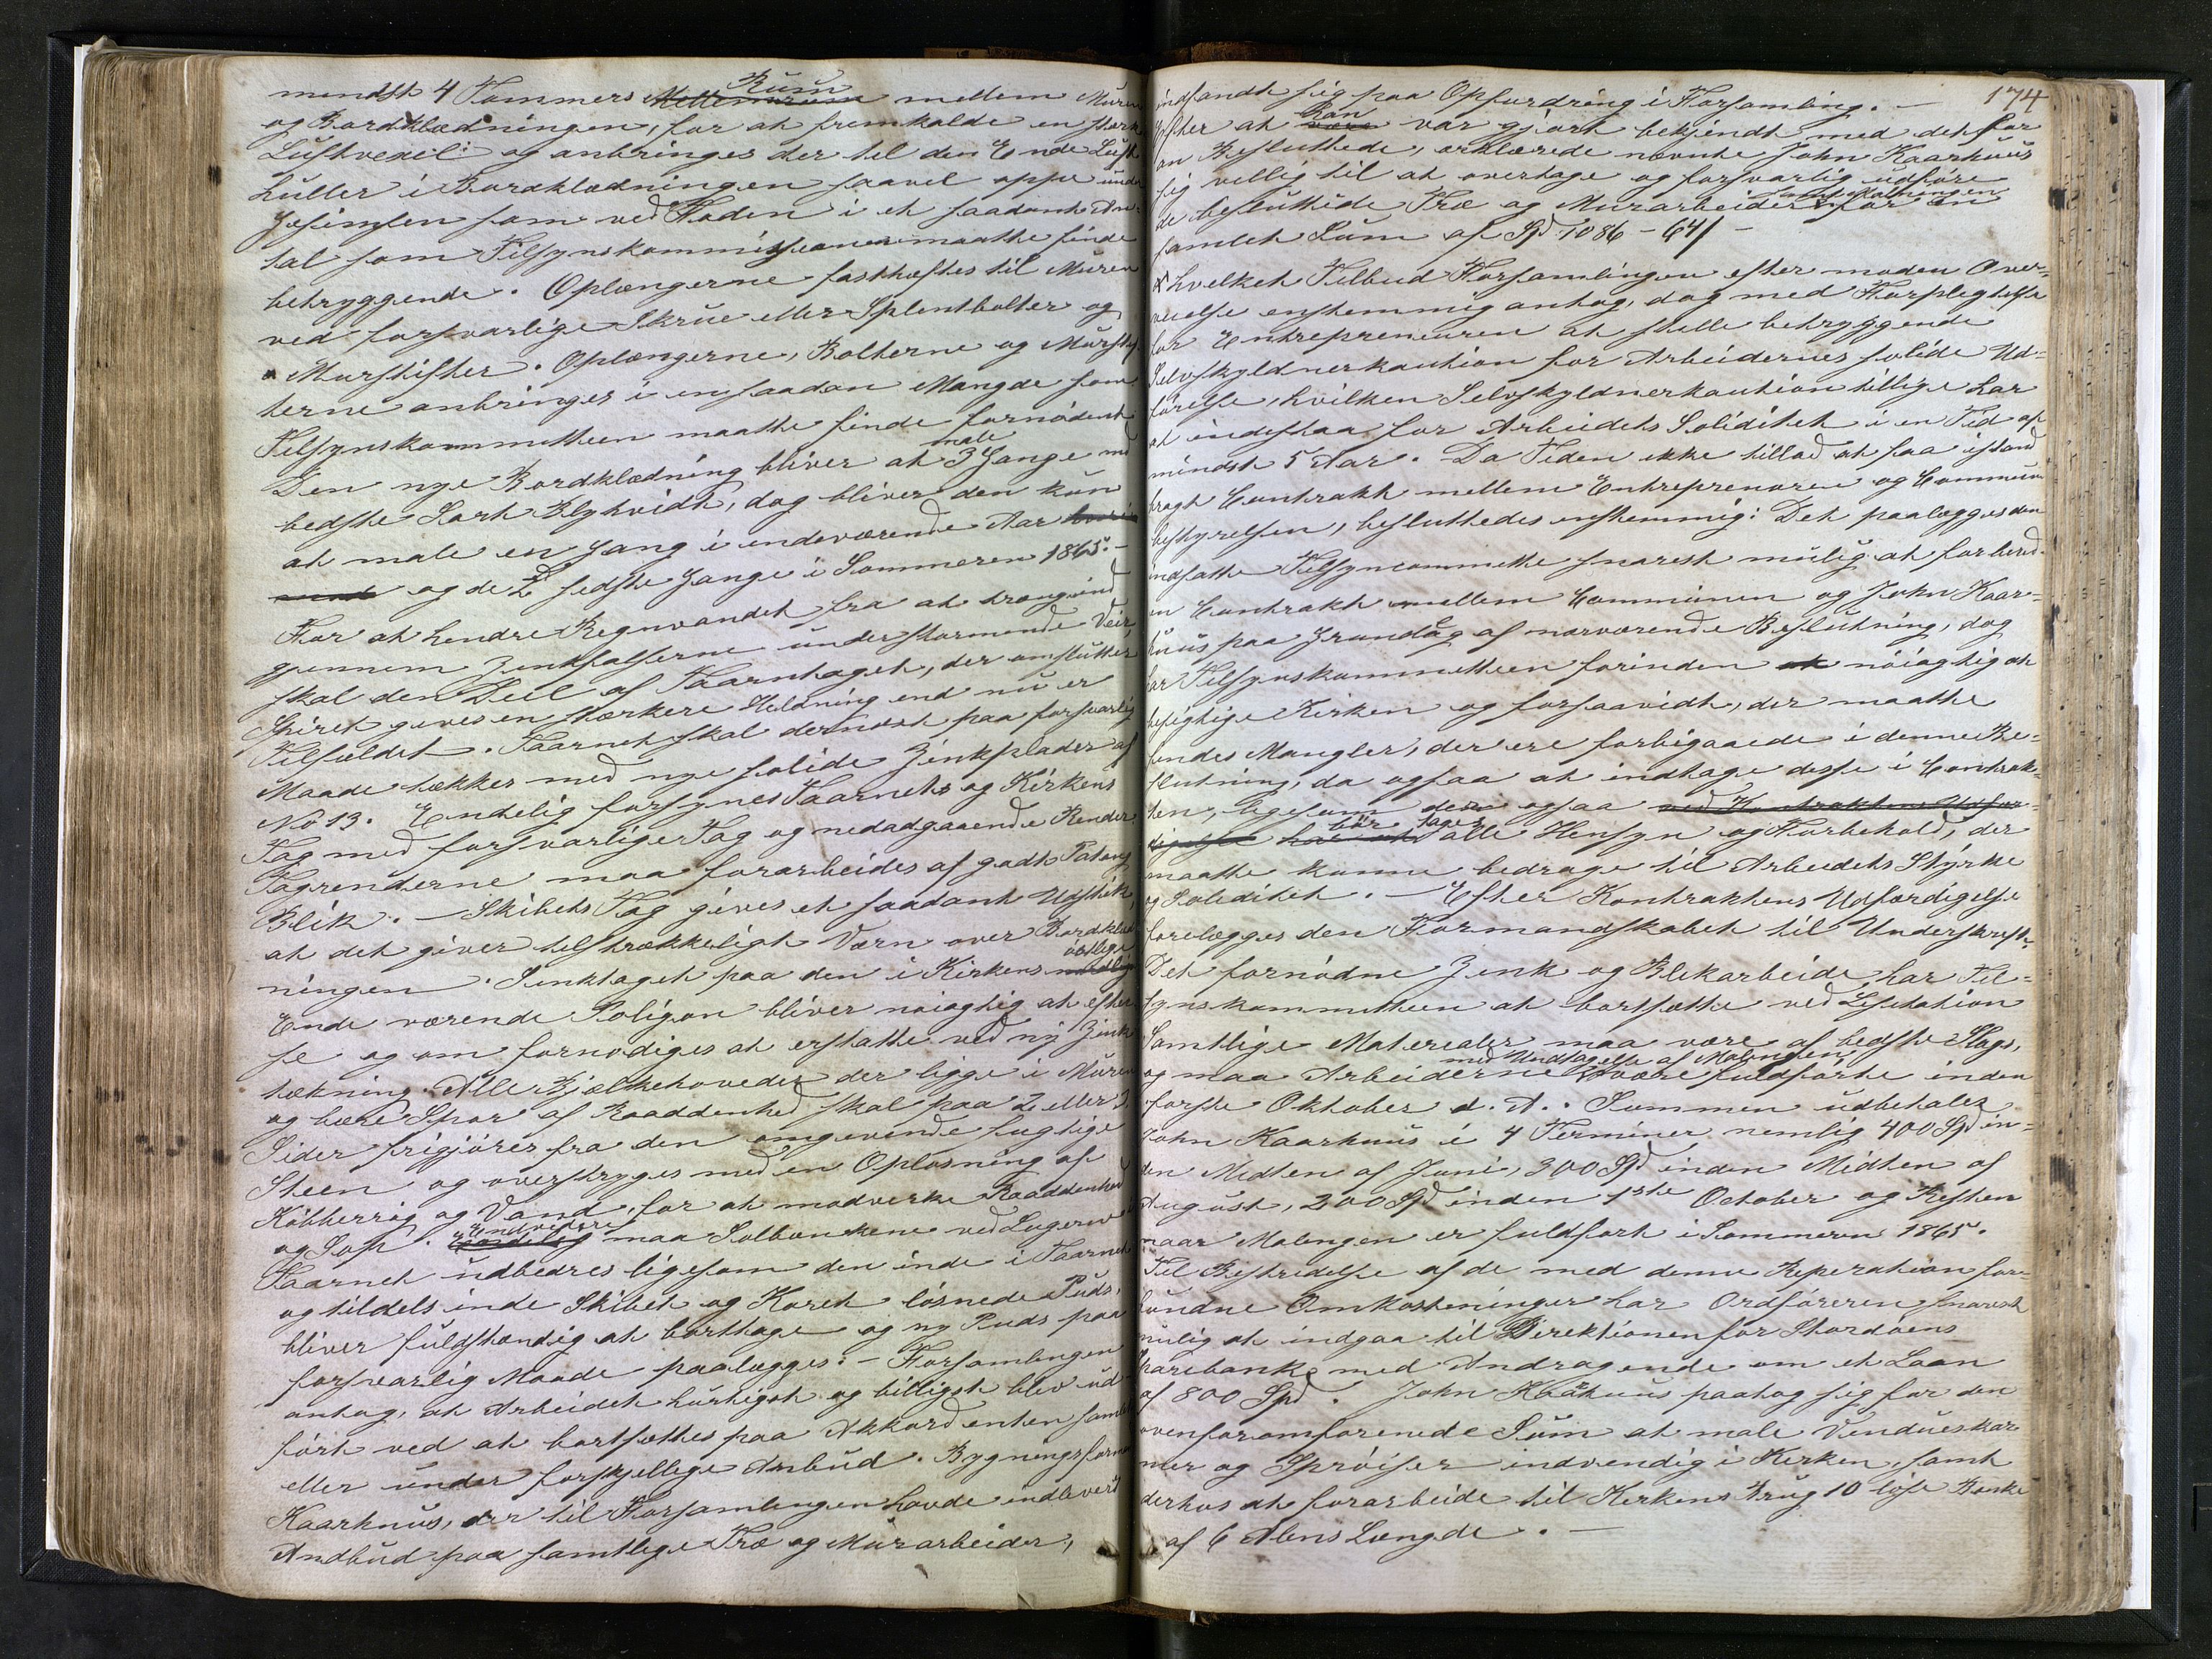 mindst 4 Tommers Rum mellem Muren
og Bordklædningen, for at fremkalde en stærk
Luftvexil: og anbringes der til den Ende Luft
huller i Bordklædningen saavel oppe under
Gesimsen som ved Foden i et saadant An-
tal som Tilsynskommissionen maatte finde
betryggende. Oplængerne fasthæftes til Muren
ved forsvarlige Skrue eller Splentbolter og
Murstifter. Oplængerne, Bolterne og Murstif-
terne anbringes i en saadan Mængde som
Tilsynskommitteen maatte finde fornødent
Den nye Bordklædning bliver at male 3 Gange med
bedste Sort Blyhvidt, dog bliver den kun
at male en Gang i indeværende Aar
og de 2de sidste Gange i Sommeren 1865. –
For at hendre Regnvandet fra at trænge ind
gjennem Zinkfalserne under stormende Veir,
skal den Deel af Taarntaget, der omslutter
Spiret gives en stærkere Heldning end nu er
Tilfældet. Taarnet skal dernæst paa forsvarlig
Maade tækkes med nye solide Zinkplader af
No 13. Endelig forsynes Taarnets og Kirkens
Tag med forsvarlige Tag og nedadgaaende Render
Tagrenderne maa forarbeides af godt Patent
Blik. – Skibets Tag gives et saadant Udstik,
at det giver tilstrækkeligt Værn over Bordklæd
ningen. Sinktaget paa den i Kirkens østlige
Ende værende Poligon bliver nøiagtig at efter
se og om fornødiges at erstatte ved ny Zink
tækning. Alle Bjælkehoveder der ligge i Muren
og bære Spor af Raaddenhed skal paa 2 eller 3
Sider frigjøres fra den omgivende fugtige
Steen og overstryges med en Opløsning af
Kobberrøg og Vand, for at modvirke Raaddenhed
og Sop. Endvidere maa Solbænkene ved Lugerne i
Taarnet udbedres ligesom den inde i Taarnet
og tildels inde Skibet og Koret løsnede Puds,
bliver fuldstændig at borttage og ny Puds paa
forsvarlig Maade paalægges: – Forsamlingen
antog, at Arbeidet hurtigst og billigst blev ud-
ført ved at bortsættes paa Akkord enten samlet
eller under forskjellige Anbud. Bygningsformand
Kaarhuus, der til Forsamlingen havde indleveret
Andbud paa samtlige Træ og Murarbeider,
174
indfandt sig paa Opfordring i Forsamling. –
Efter at han var gjort bekjendt med det for
an Besluttede, erklærede nævnte John Kaarhuus
sig villig til at overtage og forsvarlig udføre
de besluttede Træ og Murarbeider for en
samlet Sum af Spd 1086 – 64/ –
hvilket Tilbud Forsamlingen efter moden Over-
veielse enstemmig antog, dog med Forpligtelse
for Entrepreneuren at stille betryggende
Selvskyldnerkaution for Arbeidernes solide Ud-
førelse, hvilken Selvskyldnerkaution tillige har
at indestaa for Arbeidets Soliditet i en Tid af
mindst 5 Aar. Da Tiden ikke tillod at faa istand
bragt Contrakt mellem Entreprenøren og Commune
bestyrelsen, besluttedes enstemmig: Det paalægges den
indsatte Tilsyncommitte snarest mulig at forbered-
en Contrakt mellem Communen og John Kaar-
huus paa Grundlag af nærværende Beslutning, dog
har Tilsynskommitteen forinden nøiagtig at
besigtige Kirken og forsaavidt, der maatte
findes Mangler, der ere forbigaaede i denne Be-
slutning, da ogsaa at indtage disse i Contrak-
ten, ligesom der ogsaa
bør tages alle Hensyn og Forbehold, der
maatte kunne bedrage til Arbeidets Styrke
og Soliditet. – Efter Kontraktens Udfærdigelse
forelægges den Formandskabet til Underskrift.
Det fornødne Zink og Blikarbeide, har Til-
synskommitteen at bortsætte ved Lisitation
Samtlige Materialer maa være af bedste Slags,
og maa Arbeiderne med Undtagelse af Malingen være fuldførte inden
første Oktober d. A. Summen udbetales
John Kaarhuus i 4 Terminer nemlig 400 Spd in-
den Midten af Juni, 300 Spd inden Midten af
August, 200 Spd inden 1ste October og Resten
naar Malingen er fuldført i Sommeren 1865.
Til Bestridelse af de med denne Reperation for-
bundne Omkostninger har Ordføreren snarest
mulig at indgaa til Direktionen for Stordøens
Sparebank med Andragende om et Laan
af 800 Spd. John Kaarhuus paatog sig for den
ovenforomførnede Sum at male Vindueskar
mer og Sprøiser indvendig i Kirken, samt
derhos at forarbeide til Kirkens Brug 10 løse Bænke
af 6 Alens Længde. –